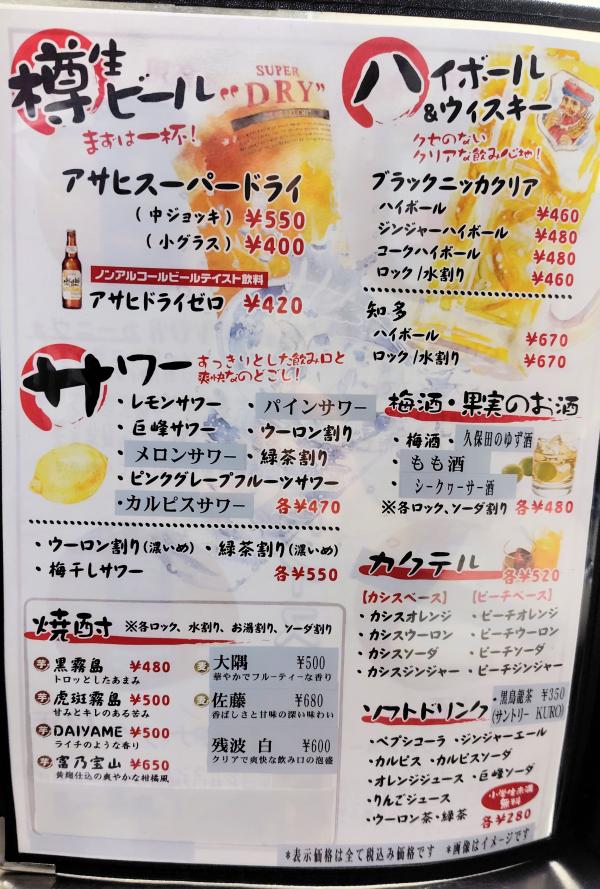 樽生ビール
まずは一杯!
SUPER
"DRY"
アサヒスーパードライ
(中ジョッキ) ¥550
(小グラス) ¥400
ノンアルコールビールテイスト飲料
アサヒドライゼロ ¥420
ハイボール
&ウィスキー
クセのない
クリアな飲み心地!
ブラックニッカクリア
ハイボール ¥460
ジンジャーハイボール ¥480
コークハイボール ¥480
ロック/水割り ¥460
知多
ハイボール ¥670
ロック/水割り ¥670
サワー
すっきりとした飲み口と
爽快なのどごし!
・レモンサワー ・パインサワー
・巨峰サワー ・ウーロン割り
・メロンサワー ・緑茶割り
・ピンクグレープフルーツサワー
・カルピスサワー 各¥470
・ウーロン割り(濃いめ) ・緑茶割り(濃いめ)
・梅干しサワー 各¥550
梅酒・果実のお酒
・梅酒 ・久保田のゆず酒
・もも酒
・シークヮーサー酒
※各ロック、ソーダ割り 各¥480
カクテル 各¥520
【カシスベース】 【ピーチベース】
・カシスオレンジ ・ピーチオレンジ
・カシスウーロン ・ピーチウーロン
・カシスソーダ ・ピーチソーダ
・カシスジンジャー ・ピーチジンジャー
焼酎 ※各ロック、水割り、お湯割り、ソーダ割り
芋 黒霧島 ¥480
トロッとしたあまみ
芋 虎斑霧島 ¥500
甘みとキレのある苦み
芋 DAIYAME ¥500
ライチのような香り
芋 富乃宝山 ¥650
黄麹仕込の爽やかな柑橘風
麦 大隅 ¥500
華やかでフルーティーな香り
麦 佐藤 ¥680
香ばしさと甘味の深い味わい
残波 白 ¥600
クリアで爽快な飲み口の泡盛
ソフトドリンク
・黒烏龍茶 ¥350
(サントリー KURO)
・ペプシコーラ ・ジンジャーエール
・カルピス ・カルピスソーダ
・オレンジジュース ・巨峰ソーダ
・りんごジュース
・ウーロン茶・緑茶 各¥280
小学生未満
無料
*表示価格は全て税込み価格です *画像はイメージです